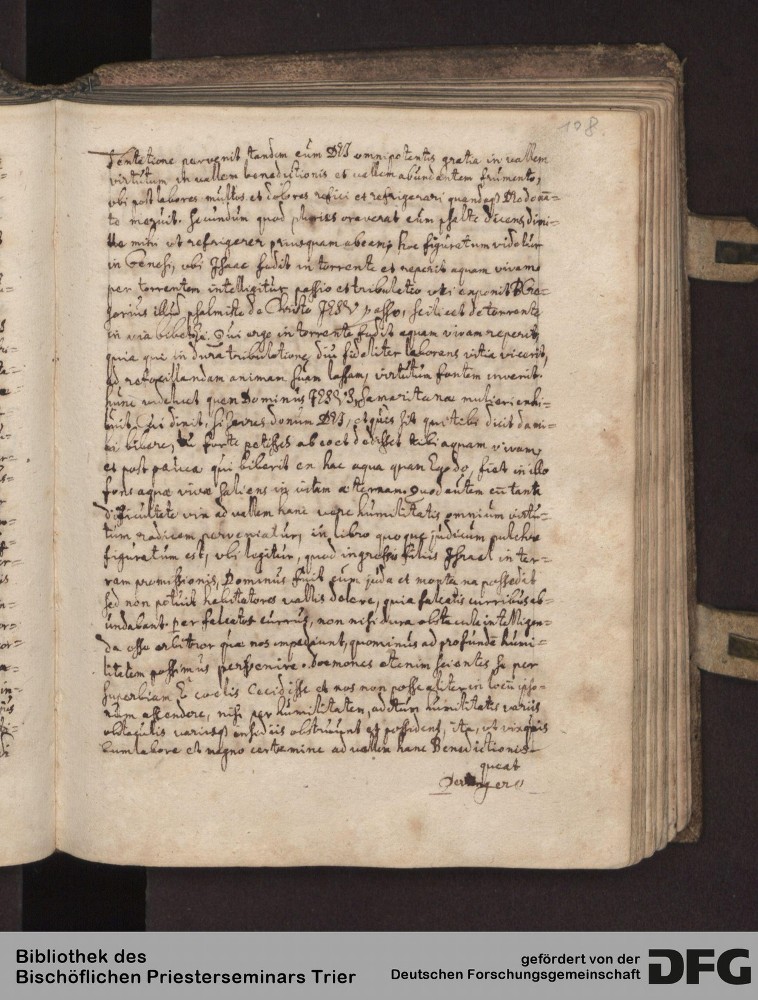 108.
Tentatione pervenit tandem cum DEI omnipotentis gratia in vallem
virtutum in vallem benedictionis et vallem abundantem frumento,
ubi post labores multos et dolores refici et refrigerari quandoq Deo don̄=
te meruit. secundum quod prius oraverat cum psalte dicens, dimi=
tte mihi ut refrigerer priusquam abeam, hoc figuratum videtur
in Genesi, ubi Isaac fodit in torrente et reperit aquam vivam
per torrentem intelligitur passio et tribulatio uti exponit B Gre=
gorius illud psalmistæ de Christo JESU passo, scilicet de torrente
in via bibet. Qui ergo in torrente fodit aquam vivam reperit,
quia qui in dura tribulatione diu fideliter laborans vitia vicerit,
ad refocillandam animam suam lassam, virtutum fontem invenit.
hunc videlicet quem Dominus JESUS, Samaritanæ mulieri exhi=
buit. Qui dixit, si scires donum DEI, et quis sit qui tibi dicit da mi=
hi bibere, tu forte petisses ab eo et dedisset tibi aquam vivam,
et post pauca qui biberit ex hac aqua quam Ego do, fiet in illo
fons aquæ vivæ saliens in vitam æternam. Quod autem cū tanta
difficultate vix ad vallem hanc veræ humilitatis omnium virtu=
tum radicem perveniatur, in libro quoque judicum pulchre
figuratum est, ubi legitur, quod ingressis filiis Israel in ter=
ram promissionis, Dominus fuit cum juda et montana possedit
sed non potuit habitatores vallis delere, quia falcatis curribus ab=
undabant. per falcatos currus, non nisi dura obstacula intelligen=
da esse arbitror quæ nos impediunt, quominus ad profundē humi=
litatem possimus pervenire. Doemones etenim scientes se per
superbiam E coelis cecidisse et nos non posse aliter in locū ipso=
rum ascendere, nisi per humilitatem, aditum humilitatis variis
obstaculis variisq insidiis obstruunt et possident, ita, ut vix quis
cum labore et magno certamine ad vallem hanc Benedictionis
queat
Bibliothek des
Bischöflichen Priesterseminars Trier
gefördert von der
Deutschen Forschungsgemeinschaft
DFG